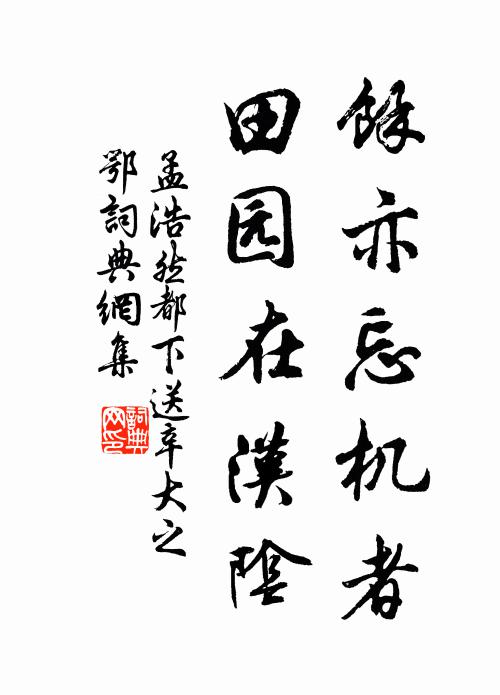 餘亦忘机者
田园在漢陰
孟浩然都下送辛大之
鄂詞典網集
詞典网印